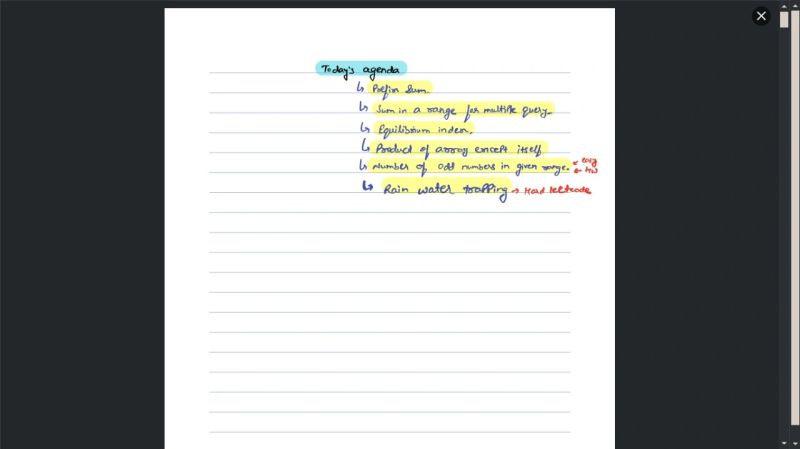 Today's agenda
↳ Prefix Sum.
↳ Sum in a range for multiple query.
↳ Equilibrium index.
↳ Product of array except itself
↳ Number of odd numbers in given range. ← easy
← HW
↳ Rain water trapping → Hard leetcode